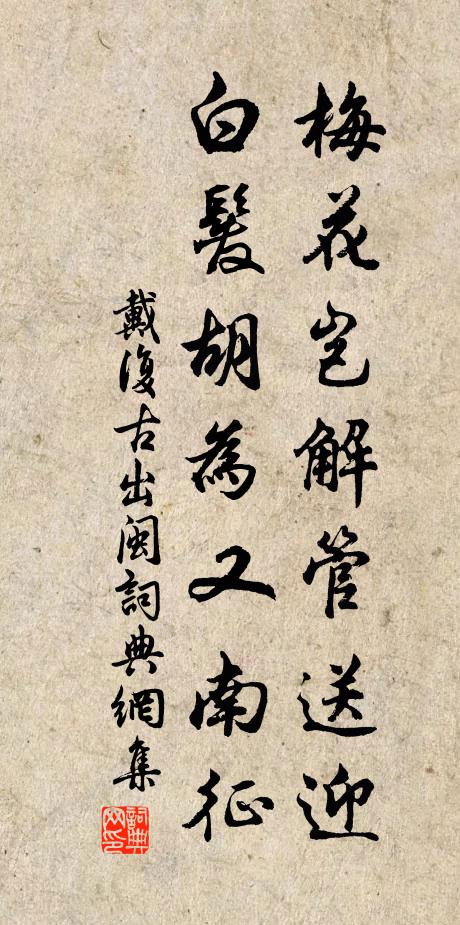 梅花豈解管送迎
白髮胡為又南征
戴復古出閩詞典網集
詞典网印